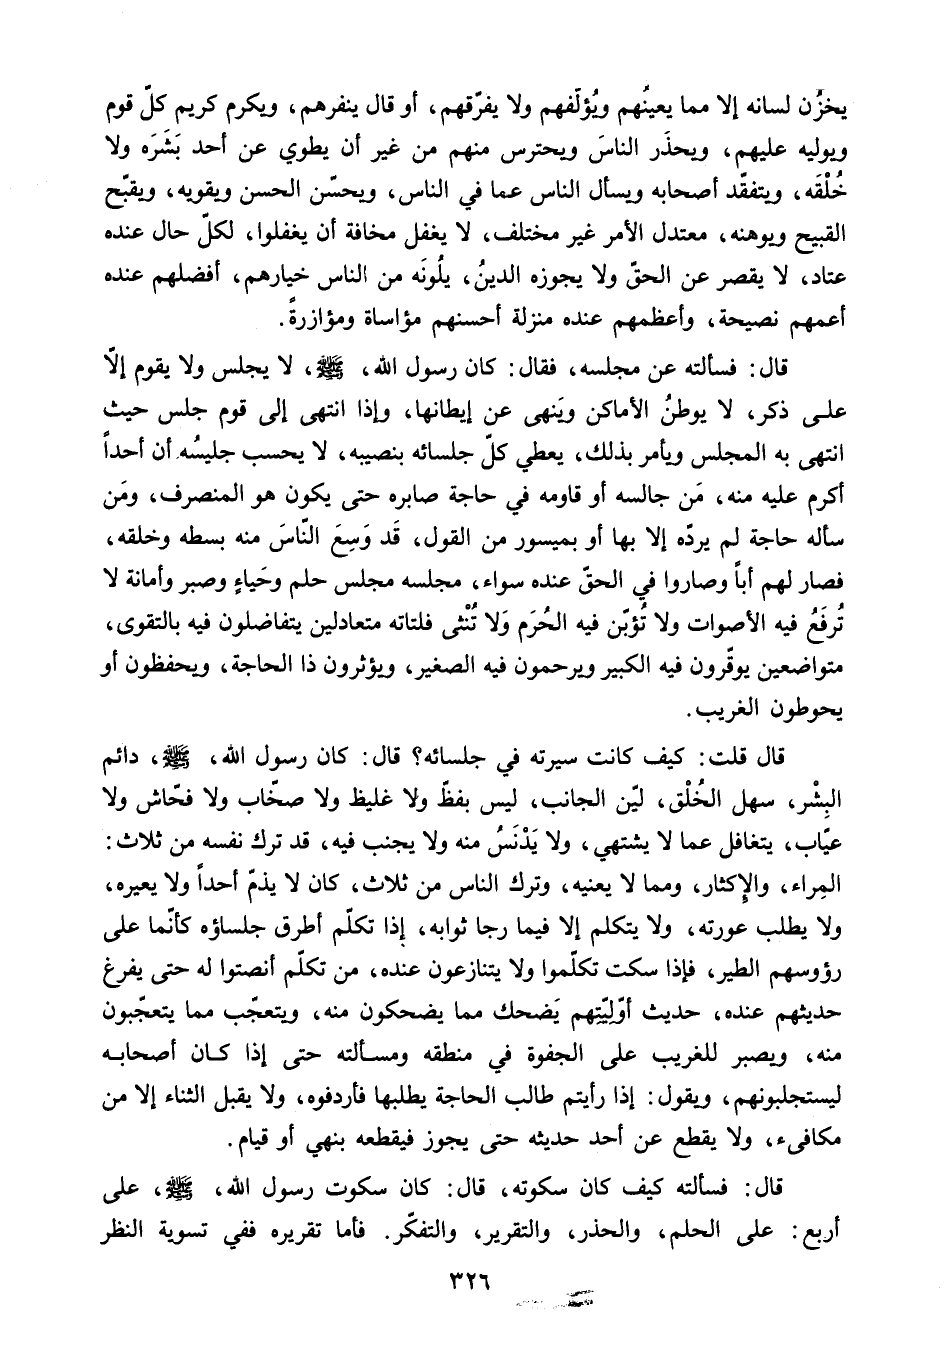 يخزُن لسانه إلا مما يعينُهم ويُؤلّفهم ولا يفرّقهم، أو قال ينفرهم، ويكرم كريم كلّ قوم
ويوليه عليهم، ويحذّر الناسَ ويحترس منهم من غير أن يطوي عن أحد بَشَرَه ولا
خُلْقَه، ويتفقّد أصحابه ويسأل الناس عما في الناس، ويحسّن الحسن ويقويه، ويقبّح
القبيح ويوهنه، معتدل الأمر غير مختلف، لا يغفل مخافة أن يغفلوا، لكلّ حال عنده
عتاد، لا يقصر عن الحقّ ولا يجوزه الدينُ، يلُونَه من الناس خيارهم، أفضلهم عنده
أعمهم نصيحة، وأعظمهم عنده منزلة أحسنهم مؤاساة ومؤازرةً.
قال: فسألته عن مجلسه، فقال: كان رسول الله، ﷺ، لا يجلس ولا يقوم إلّا
على ذكر، لا يوطنُ الأماكن ويَنهى عن إيطانها، وإذا انتهى إلى قوم جلس حيث
انتهى به المجلس ويأمر بذلك، يعطي كلّ جلسائه بنصيبه، لا يحسب جليسُه أن أحداً
أكرم عليه منه، مَن جالسه أو قاومه في حاجة صابره حتى يكون هو المنصرف، ومَن
سأله حاجة لم يردّه إلا بها أو بميسور من القول، قَد وَسِعَ النّاسَ منه بسطه وخلقه،
فصار لهم أباً وصاروا في الحقّ عنده سواء، مجلسه مجلس حلم وحَياءٍ وصبر وأمانة لا
تُرفَعُ فيه الأصوات ولا تُؤبّن فيه الحُرَم وَلا تُنْثى فلتاته متعادلين يتفاضلون فيه بالتقوى،
متواضعين يوقّرون فيه الكبير ويرحمون فيه الصغير، ويؤثرون ذا الحاجة، ويحفظون أو
يحوطون الغريب.
قال قلت: كيف كانت سيرته في جلسائه؟ قال: كان رسول الله، ﷺ، دائم
البِشْر، سهل الخُلْق، ليّن الجانب، ليس بفظّ ولا غليظ ولا صخّاب ولا فحّاش ولا
عيّاب، يتغافل عما لا يشتهي، ولا يَدْنَسُ منه ولا يجنب فيه، قد ترك نفسه من ثلاث:
المِراء، والإِكثار، ومما لا يعنيه، وترك الناس من ثلاث، كان لا يذمّ أحداً ولا يعيره،
ولا يطلب عورته، ولا يتكلم إلا فيما رجا ثوابه، إذا تكلّم أطرق جلساؤه كأنّما على
رؤوسهم الطير، فإذا سكت تكلّموا ولا يتنازعون عنده، من تكلّم أنصتوا له حتى يفرغ
حديثهم عنده، حديث أوّلِيّتِهم يَضحك مما يضحكون منه، ويتعجّب مما يتعجّبون
منه، ويصبر للغريب على الجفوة في منطقه ومسألته حتى إذا كان أصحابه
ليستجلبونهم، ويقول: إذا رأيتم طالب الحاجة يطلبها فأردفوه، ولا يقبل الثناء إلا من
مكافىء، ولا يقطع عن أحد حديثه حتى يجوز فيقطعه بنهي أو قيام.
قال: فسألته كيف كان سكوته، قال: كان سكوت رسول الله، ﷺ، على
أربع: على الحلم، والحذر، والتقرير، والتفكّر. فأما تقريره ففي تسوية النظر
٣٢٦